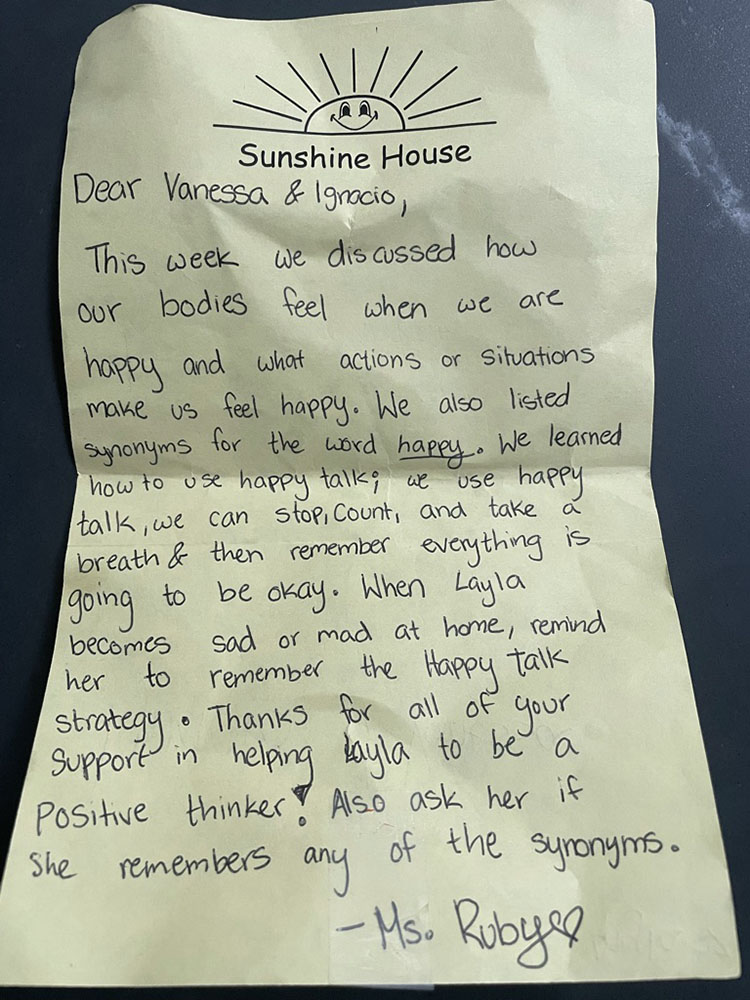 Sunshine House
Dear Vanessa & Ignacio,
This week we discussed how
our bodies feel when we are
happy and what actions or situations
make us feel happy. We also listed
synonyms for the word happy. We learned
how to use happy talk; we use happy
talk, we can stop, count, and take a
breath & then remember everything is
going to be okay. When Layla
becomes sad or mad at home, remind
her to remember the Happy talk
strategy. Thanks for all of your
support in helping Layla to be a
positive thinker! Also ask her if
she remembers any of the synonyms.
- Ms. Ruby♡